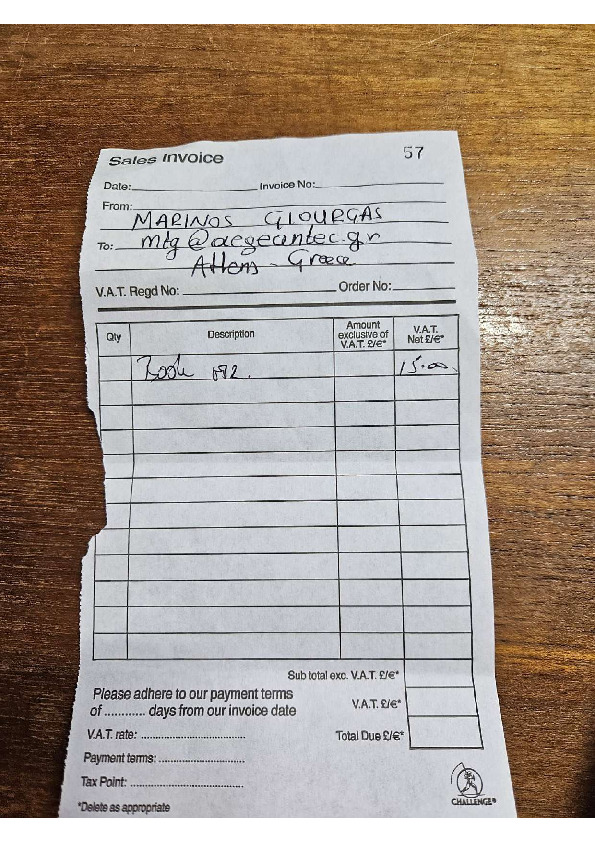 Sales Invoice 57
Date: Invoice No:
From:
MARINOS GIOURGAS
To: mtg@aegeantec.gr
Athens - Greece
V.A.T. Regd No: Order No:
Qty Description Amount exclusive of V.A.T. £/€* V.A.T. Net £/€*
Book 092. 15.00
Sub total exc. V.A.T. £/€*
Please adhere to our payment terms
of ............ days from our invoice date
V.A.T. £/€*
V.A.T. rate: Total Due £/€*
Payment terms:
Tax Point:
*Delete as appropriate
CHALLENGE®